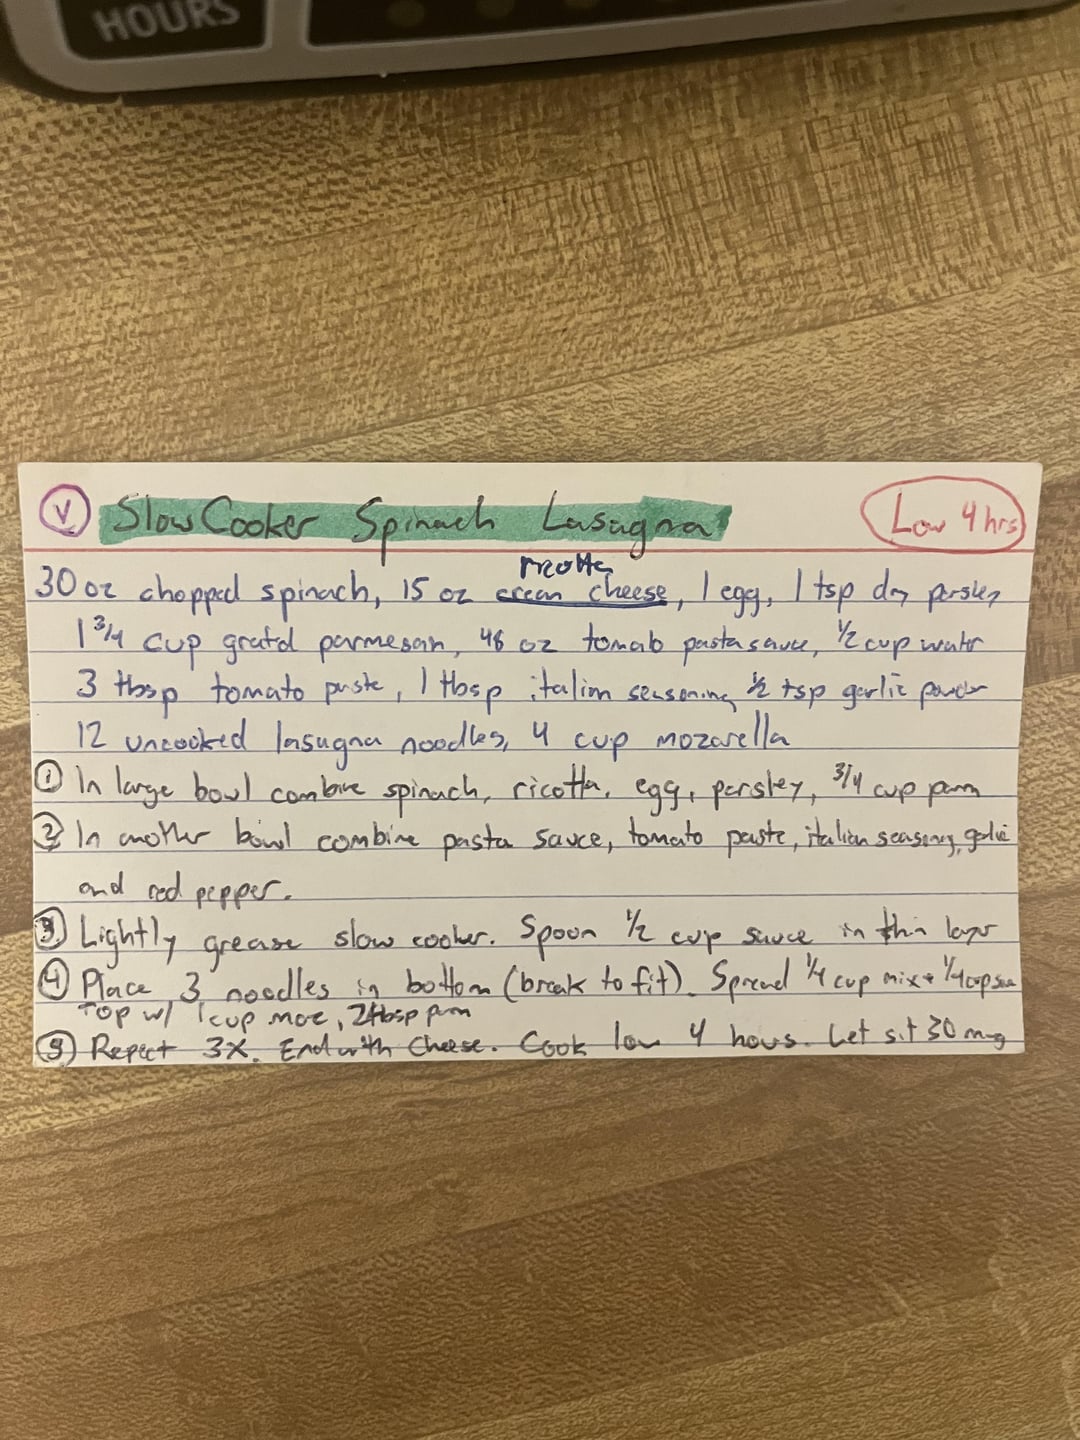 HOURS
V Slow Cooker Spinach Lasagna Low 4 hrs
ricotta
30 oz chopped spinach, 15 oz cream cheese, 1 egg, 1 tsp dry parsley
1 3/4 cup gratd parmesan, 48 oz tomato pasta sauce, 1/2 cup water
3 tbsp tomato paste, 1 tbsp italian seasoning 1/2 tsp garlic powder
12 uncooked lasagna noodles, 4 cup mozarella
① In large bowl combine spinach, ricotta, egg, parsley, 3/4 cup parm
② In another bowl combine pasta sauce, tomato paste, italian seasong, garlic
and red pepper.
③ Lightly grease slow cooker. Spoon 1/2 cup sauce in thin layer
④ Place 3 noodles in bottom (break to fit). Spread 1/4 cup mix + 1/4 cup
Top w/ 1 cup moz, 2 tbsp parm
⑤ Repeat 3X. End with cheese. Cook low 4 hours. Let sit 30